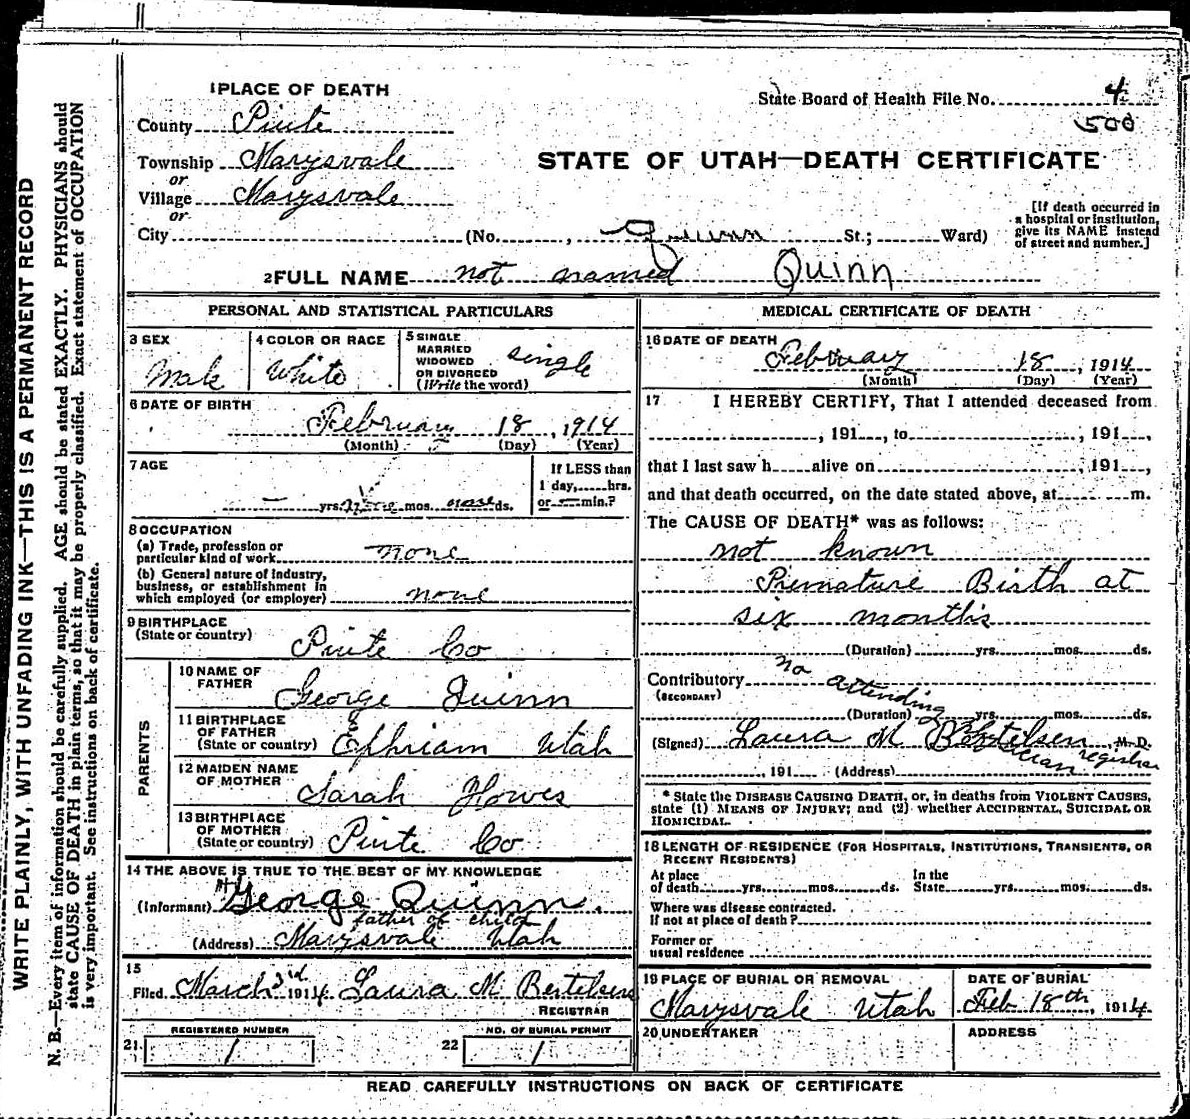 1 PLACE OF DEATH
State Board of Health File No. 4
500
County Piute
Township Marysvale
or
Village Marysvale
or
City (No. , Quinn St.; Ward)
STATE OF UTAH—DEATH CERTIFICATE
[If death occurred in
a hospital or institution,
give its NAME instead
of street and number.]
2 FULL NAME not named Quinn
PERSONAL AND STATISTICAL PARTICULARS
3 SEX
Male
4 COLOR OR RACE
White
5 SINGLE
MARRIED
WIDOWED
OR DIVORCED
(Write the word)
single
6 DATE OF BIRTH
February 18, 1914
(Month) (Day) (Year)
7 AGE
— yrs. mos. none ds.
If LESS than
1 day, hrs.
or — min.?
8 OCCUPATION
(a) Trade, profession or
particular kind of work none
(b) General nature of industry,
business, or establishment in
which employed (or employer) none
9 BIRTHPLACE
(State or country)
Piute Co
PARENTS
10 NAME OF
FATHER
George Quinn
11 BIRTHPLACE
OF FATHER
(State or country) Ephriam Utah
12 MAIDEN NAME
OF MOTHER
Sarah Howes
13 BIRTHPLACE
OF MOTHER
(State or country) Piute Co
14 THE ABOVE IS TRUE TO THE BEST OF MY KNOWLEDGE
(Informant) George Quinn.
father of child
(Address) Marysvale Utah
15
Filed March 3rd 1914 Laura M Bertelsen
REGISTRAR
REGISTERED NUMBER
21 1
NO. OF BURIAL PERMIT
22 1
MEDICAL CERTIFICATE OF DEATH
16 DATE OF DEATH
February 18, 1914
(Month) (Day) (Year)
17 I HEREBY CERTIFY, That I attended deceased from
, 191 , to , 191 ,
that I last saw h alive on , 191 ,
and that death occurred, on the date stated above, at m.
The CAUSE OF DEATH* was as follows:
not known
Premature Birth at
six months
(Duration) yrs. mos. ds.
Contributory no attending
(SECONDARY)
(Duration) yrs. mos. ds.
(Signed) Laura M Bertelsen M. D.
registrar
, 191 (Address)
* State the DISEASE CAUSING DEATH, or, in deaths from VIOLENT CAUSES,
state (1) MEANS OF INJURY; and (2) whether ACCIDENTAL, SUICIDAL OR
HOMICIDAL.
18 LENGTH OF RESIDENCE (FOR HOSPITALS, INSTITUTIONS, TRANSIENTS, OR
RECENT RESIDENTS)
At place
of death yrs. mos. ds.
In the
State yrs. mos. ds.
Where was disease contracted.
If not at place of death?
Former or
usual residence
19 PLACE OF BURIAL OR REMOVAL
Marysvale Utah
DATE OF BURIAL
Feb 18th, 1914
20 UNDERTAKER
ADDRESS
READ CAREFULLY INSTRUCTIONS ON BACK OF CERTIFICATE
WRITE PLAINLY, WITH UNFADING INK—THIS IS A PERMANENT RECORD
N. B.—Every item of information should be carefully supplied. AGE should be stated EXACTLY. PHYSICIANS should
state CAUSE OF DEATH in plain terms, so that it may be properly classified. Exact statement of OCCUPATION
is very important. See instructions on back of certificate.